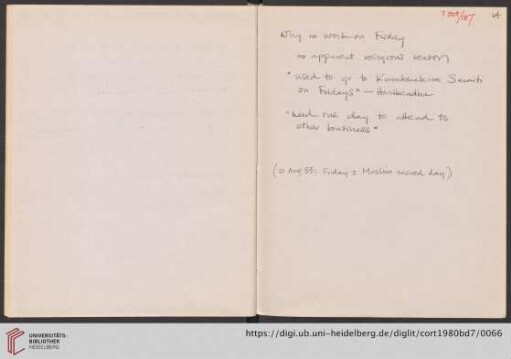 7 Oct/87 64
Why no work on Friday
no apparent religious reason
"used to go to Kumbhakara Samiti
on Fridays" —
"need one day to attend to
other business"
(21 Aug 88: Friday = Muslim sacred day)
UNIVERSITÄTS-
BIBLIOTHEK
HEIDELBERG
https://digi.ub.uni-heidelberg.de/diglit/cort1980bd7/0066